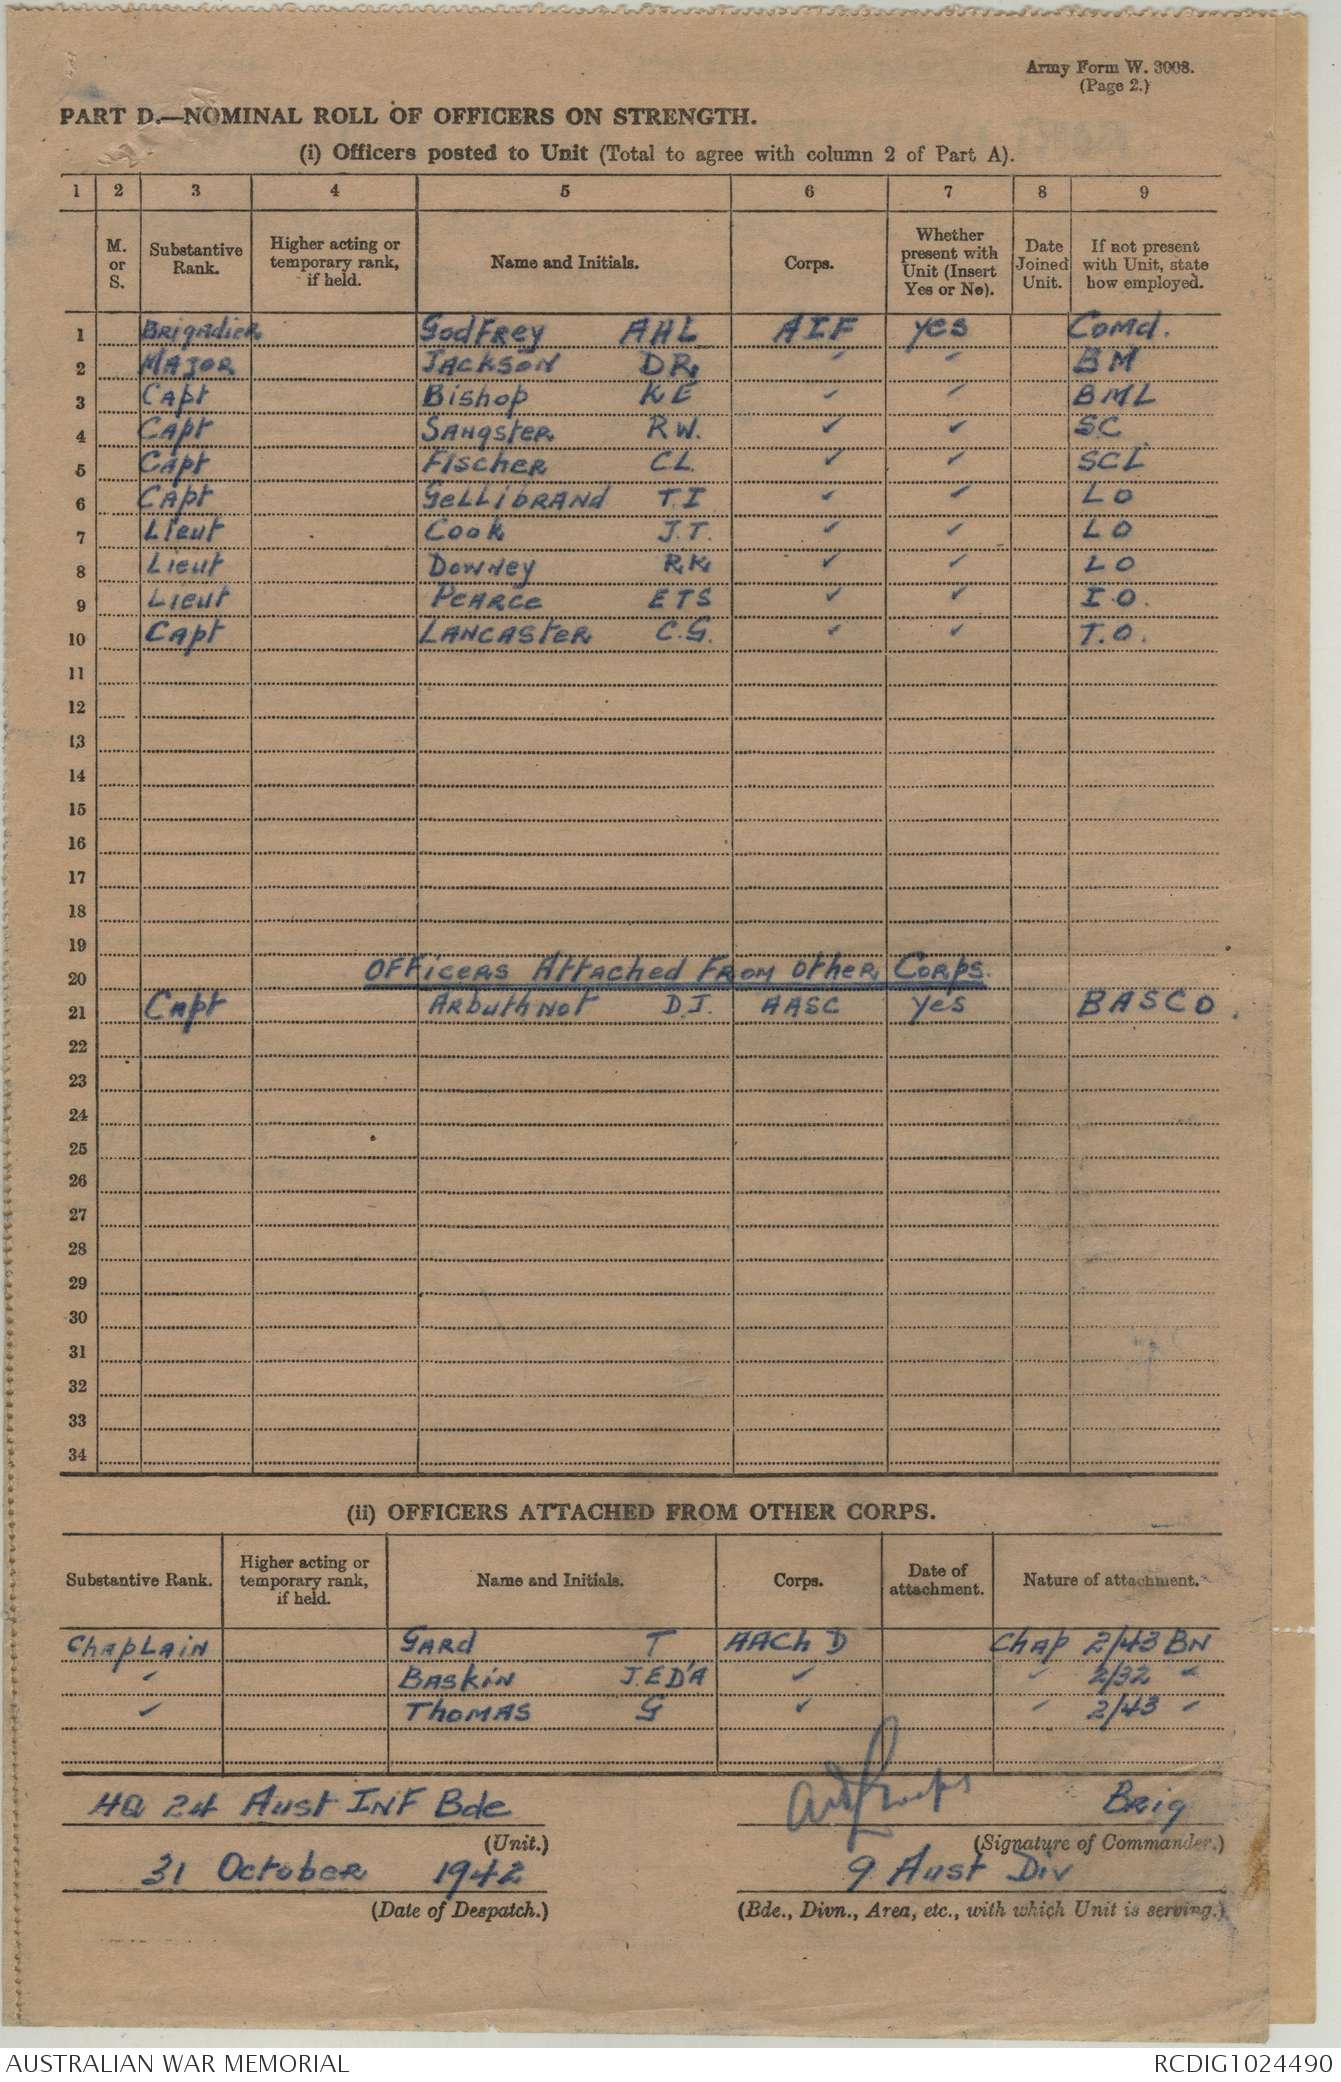 Army Form W. 3008.
(Page 2.)
PART D.—NOMINAL ROLL OF OFFICERS ON STRENGTH.
(i) Officers posted to Unit (Total to agree with column 2 of Part A).
1 2 3 4 5 6 7 8 9
M. or S. Substantive Rank. Higher acting or temporary rank, if held. Name and Initials. Corps. Whether present with Unit (Insert Yes or No). Date Joined Unit. If not present with Unit, state how employed.
1 Brigadier Godfrey AHL AIF yes Comd.
2 Major Jackson DR ✓ ✓ BM
3 Capt Bishop KE ✓ ✓ BML
4 Capt Sangster RW. ✓ ✓ SC
5 Capt Fischer CL. ✓ ✓ SCL
6 Capt Gellibrand T.I ✓ ✓ LO
7 Lieut Cook J.T. ✓ ✓ LO
8 Lieut Downey RK ✓ ✓ LO
9 Lieut Pearce ETS ✓ ✓ I.O.
10 Capt Lancaster C.G. ✓ ✓ T.O.
11
12
13
14
15
16
17
18
19
20 Officers Attached From Other Corps.
21 Capt Arbuthnot D.J. AASC yes BASCO.
22
23
24
25
26
27
28
29
30
31
32
33
34
(ii) OFFICERS ATTACHED FROM OTHER CORPS.
Substantive Rank. Higher acting or temporary rank, if held. Name and Initials. Corps. Date of attachment. Nature of attachment.
Chaplain Gard T AACh D Chap 2/43 BN
✓ Baskin J.ED'A ✓ ✓ 2/32 ✓
✓ Thomas G ✓ ✓ 2/43 ✓
HQ 24 Aust INF Bde Brig
(Unit.) (Signature of Commander.)
31 October 1942 9 Aust Div
(Date of Despatch.) (Bde., Divn., Area, etc., with which Unit is serving.)
AUSTRALIAN WAR MEMORIAL RCDIG1024490